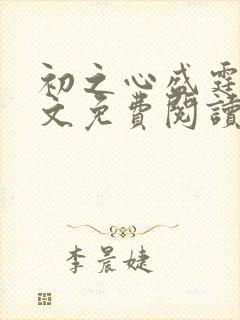 初之心盛霆
文免費閱讀
李晨婕